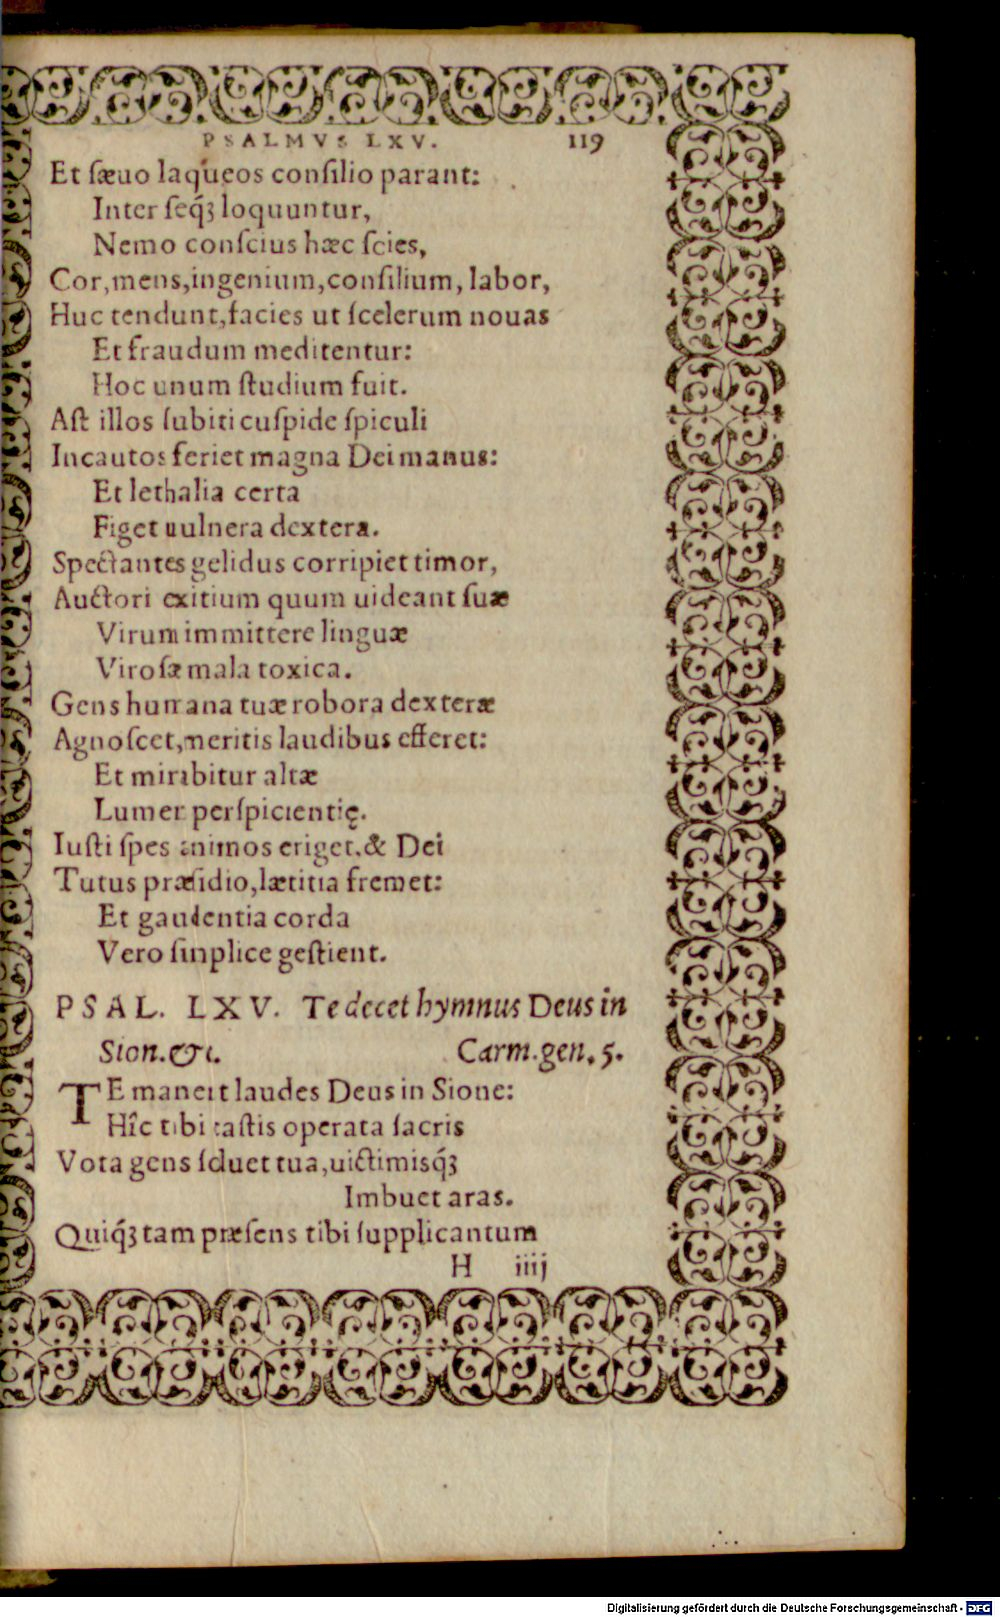 PSALMVS LXV. 119
Et sæuo laqueos consilio parant:
Inter seq́ꝫ loquuntur,
Nemo conscius hæc scies,
Cor, mens, ingenium, consilium, labor,
Huc tendunt, facies ut scelerum nouas
Et fraudum meditentur:
Hoc unum studium fuit.
Ast illos subiti cuspide spiculi
Incautos feriet magna Dei manus:
Et lethalia certa
Figet uulnera dextera.
Spectantes gelidus corripiet timor,
Auctori exitium quum uideant suæ
Virum immittere linguæ
Virosæ mala toxica.
Gens humana tuæ robora dexteræ
Agnoscet, meritis laudibus efferet:
Et mirabitur altæ
Lumen perspicientię.
Iusti spes animos eriget, & Dei
Tutus præsidio, lætitia fremet:
Et gaudentia corda
Vero simplice gestient.
PSAL. LXV. Te decet hymnus Deus in
Sion. &c. Carm. gen. 5.
TE manent laudes Deus in Sione:
Hîc tibi castis operata sacris
Vota gens soluet tua, uictimisq́ꝫ
Imbuet aras.
Quiq́ꝫ tam præsens tibi supplicantum
H iiij
Digitalisierung gefördert durch die Deutsche Forschungsgemeinschaft - DFG